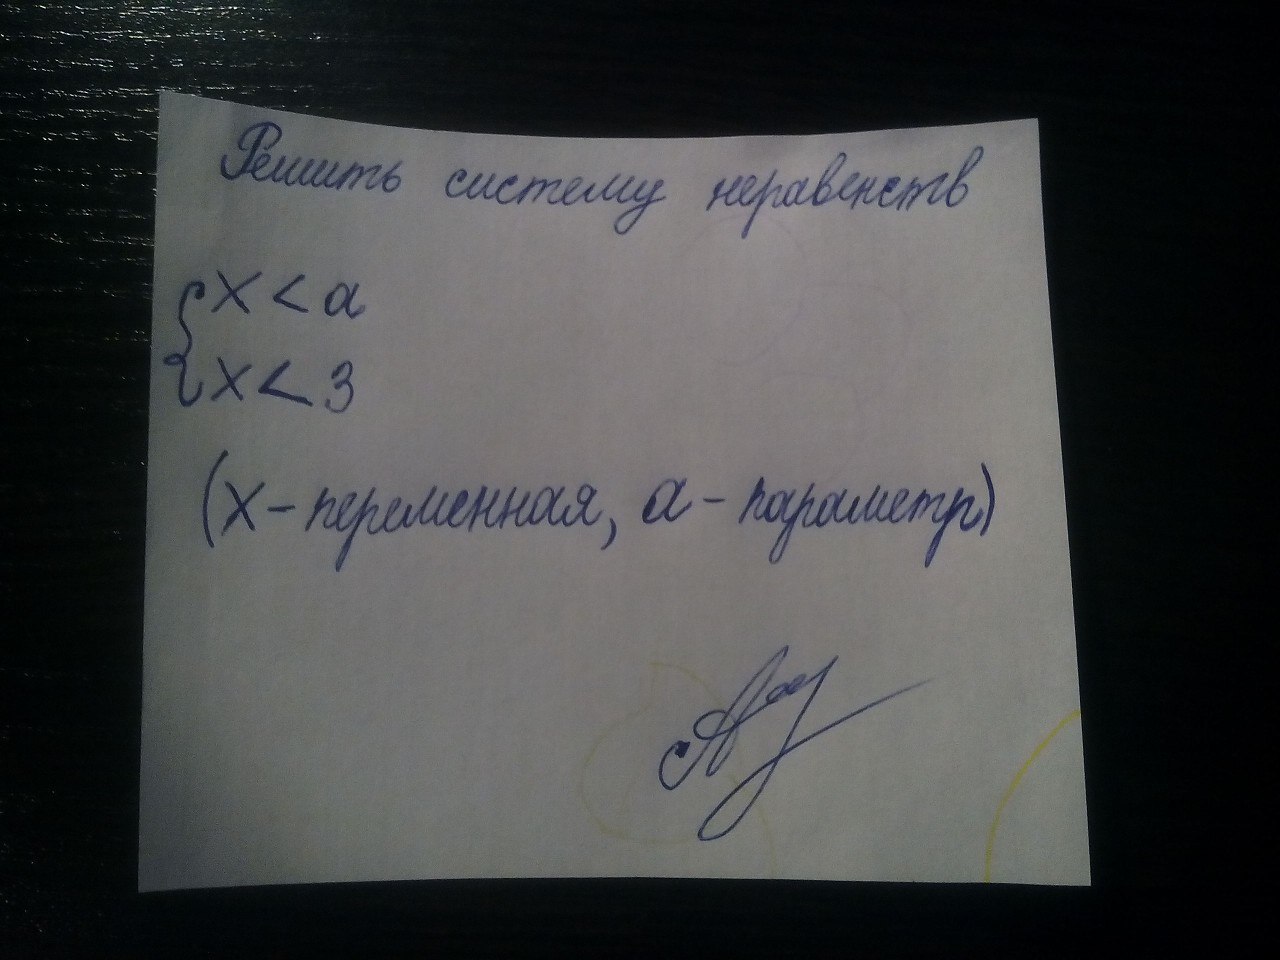 Решить систему неравенств
{ x < a
x < 3
(x - переменная, a - параметр)